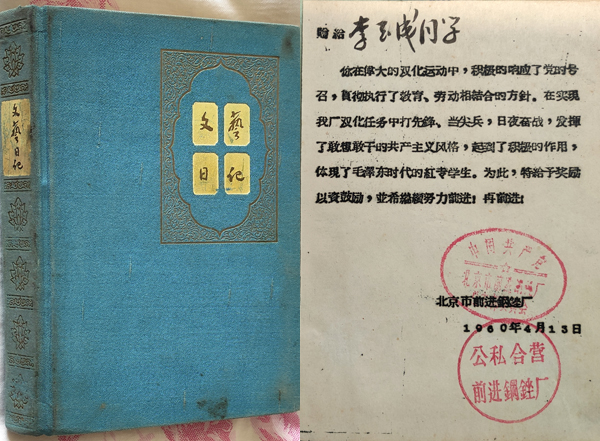 文藝日记
文藝
日记
赠給 李玉成同学
你在偉大的双化运动中，积极的响应了党的号
召，貫彻执行了教育、劳动相結合的方針。在实現
我厂双化任务中打先鋒、当尖兵，日夜奋战，发揮
了敢想敢干的共产主义风格，起到了积极的作用，
体現了毛澤东时代的紅专学生。为此，特給予奖励
以資鼓励，並希継續努力前进！再前进！
中国共产党
北京市前进鋼銼厂
1960年4月13日
公私合营
前进鋼銼厂